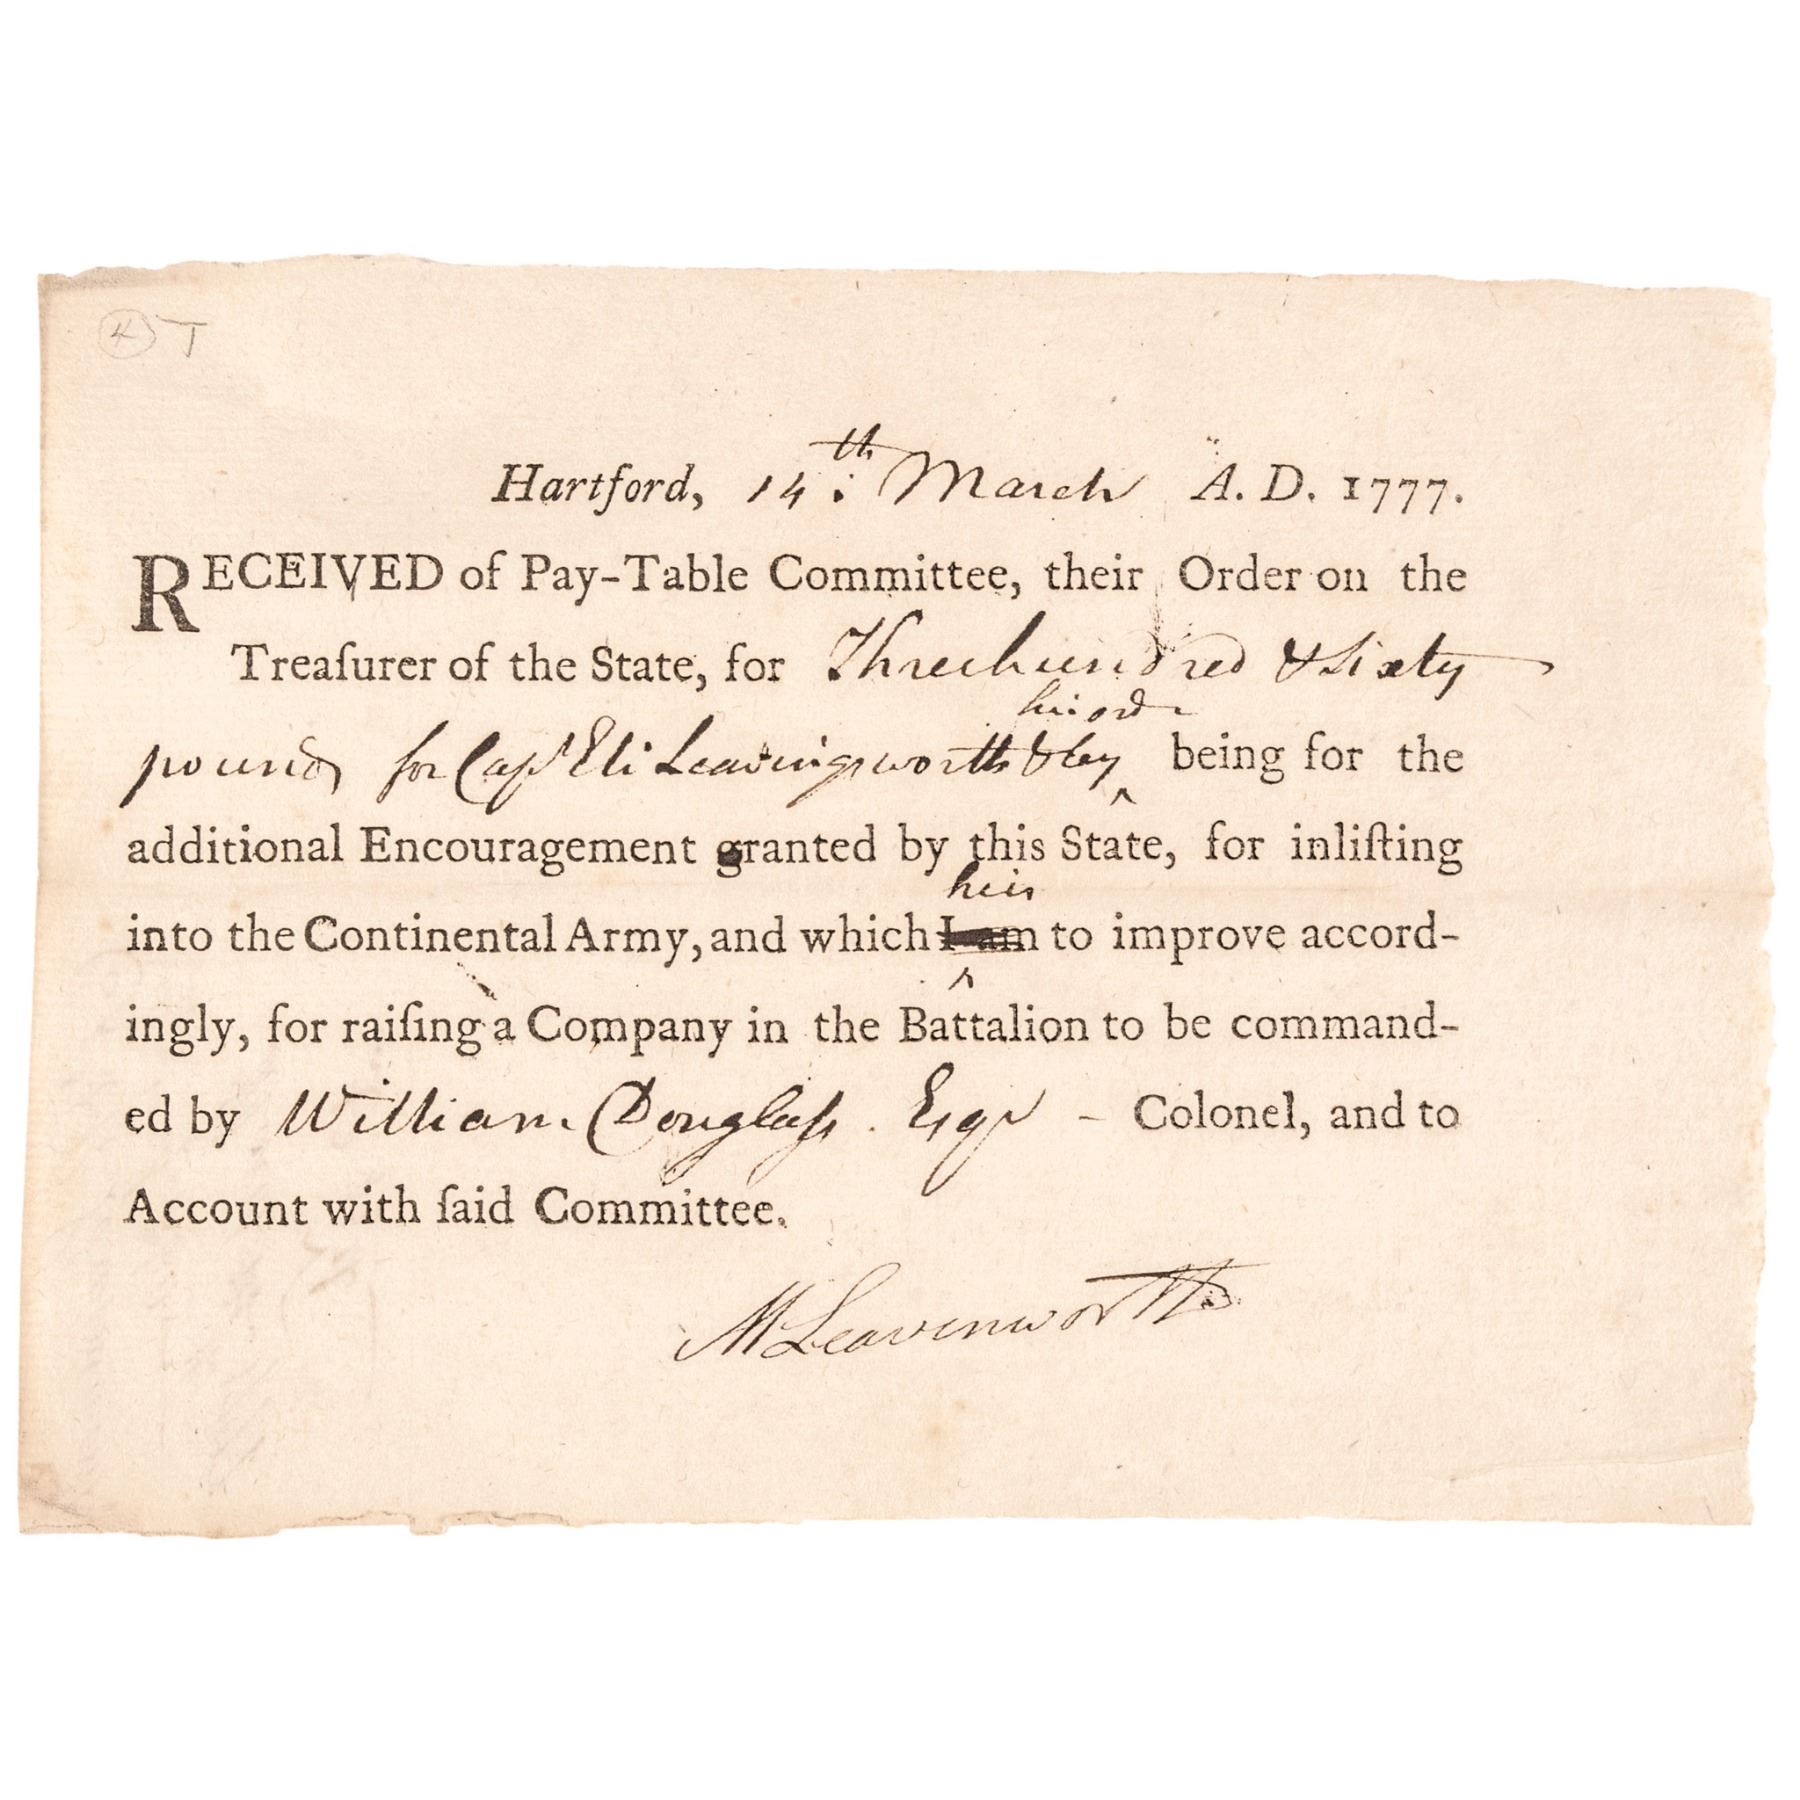 4 T
Hartford, 14th: March A. D. 1777.
RECEIVED of Pay-Table Committee, their Order on the
Treaſurer of the State, for Threehundred & Sixty
his ord
pounds for Capt Eli Leavingsworth & by ‸ being for the
additional Encouragement granted by this State, for inliſting
he is
into the Continental Army, and which I am ‸ to improve accord-
ingly, for raiſing a Company in the Battalion to be command-
ed by William Douglaſs. Esqr - Colonel, and to
Account with ſaid Committee.
M Leavenworth